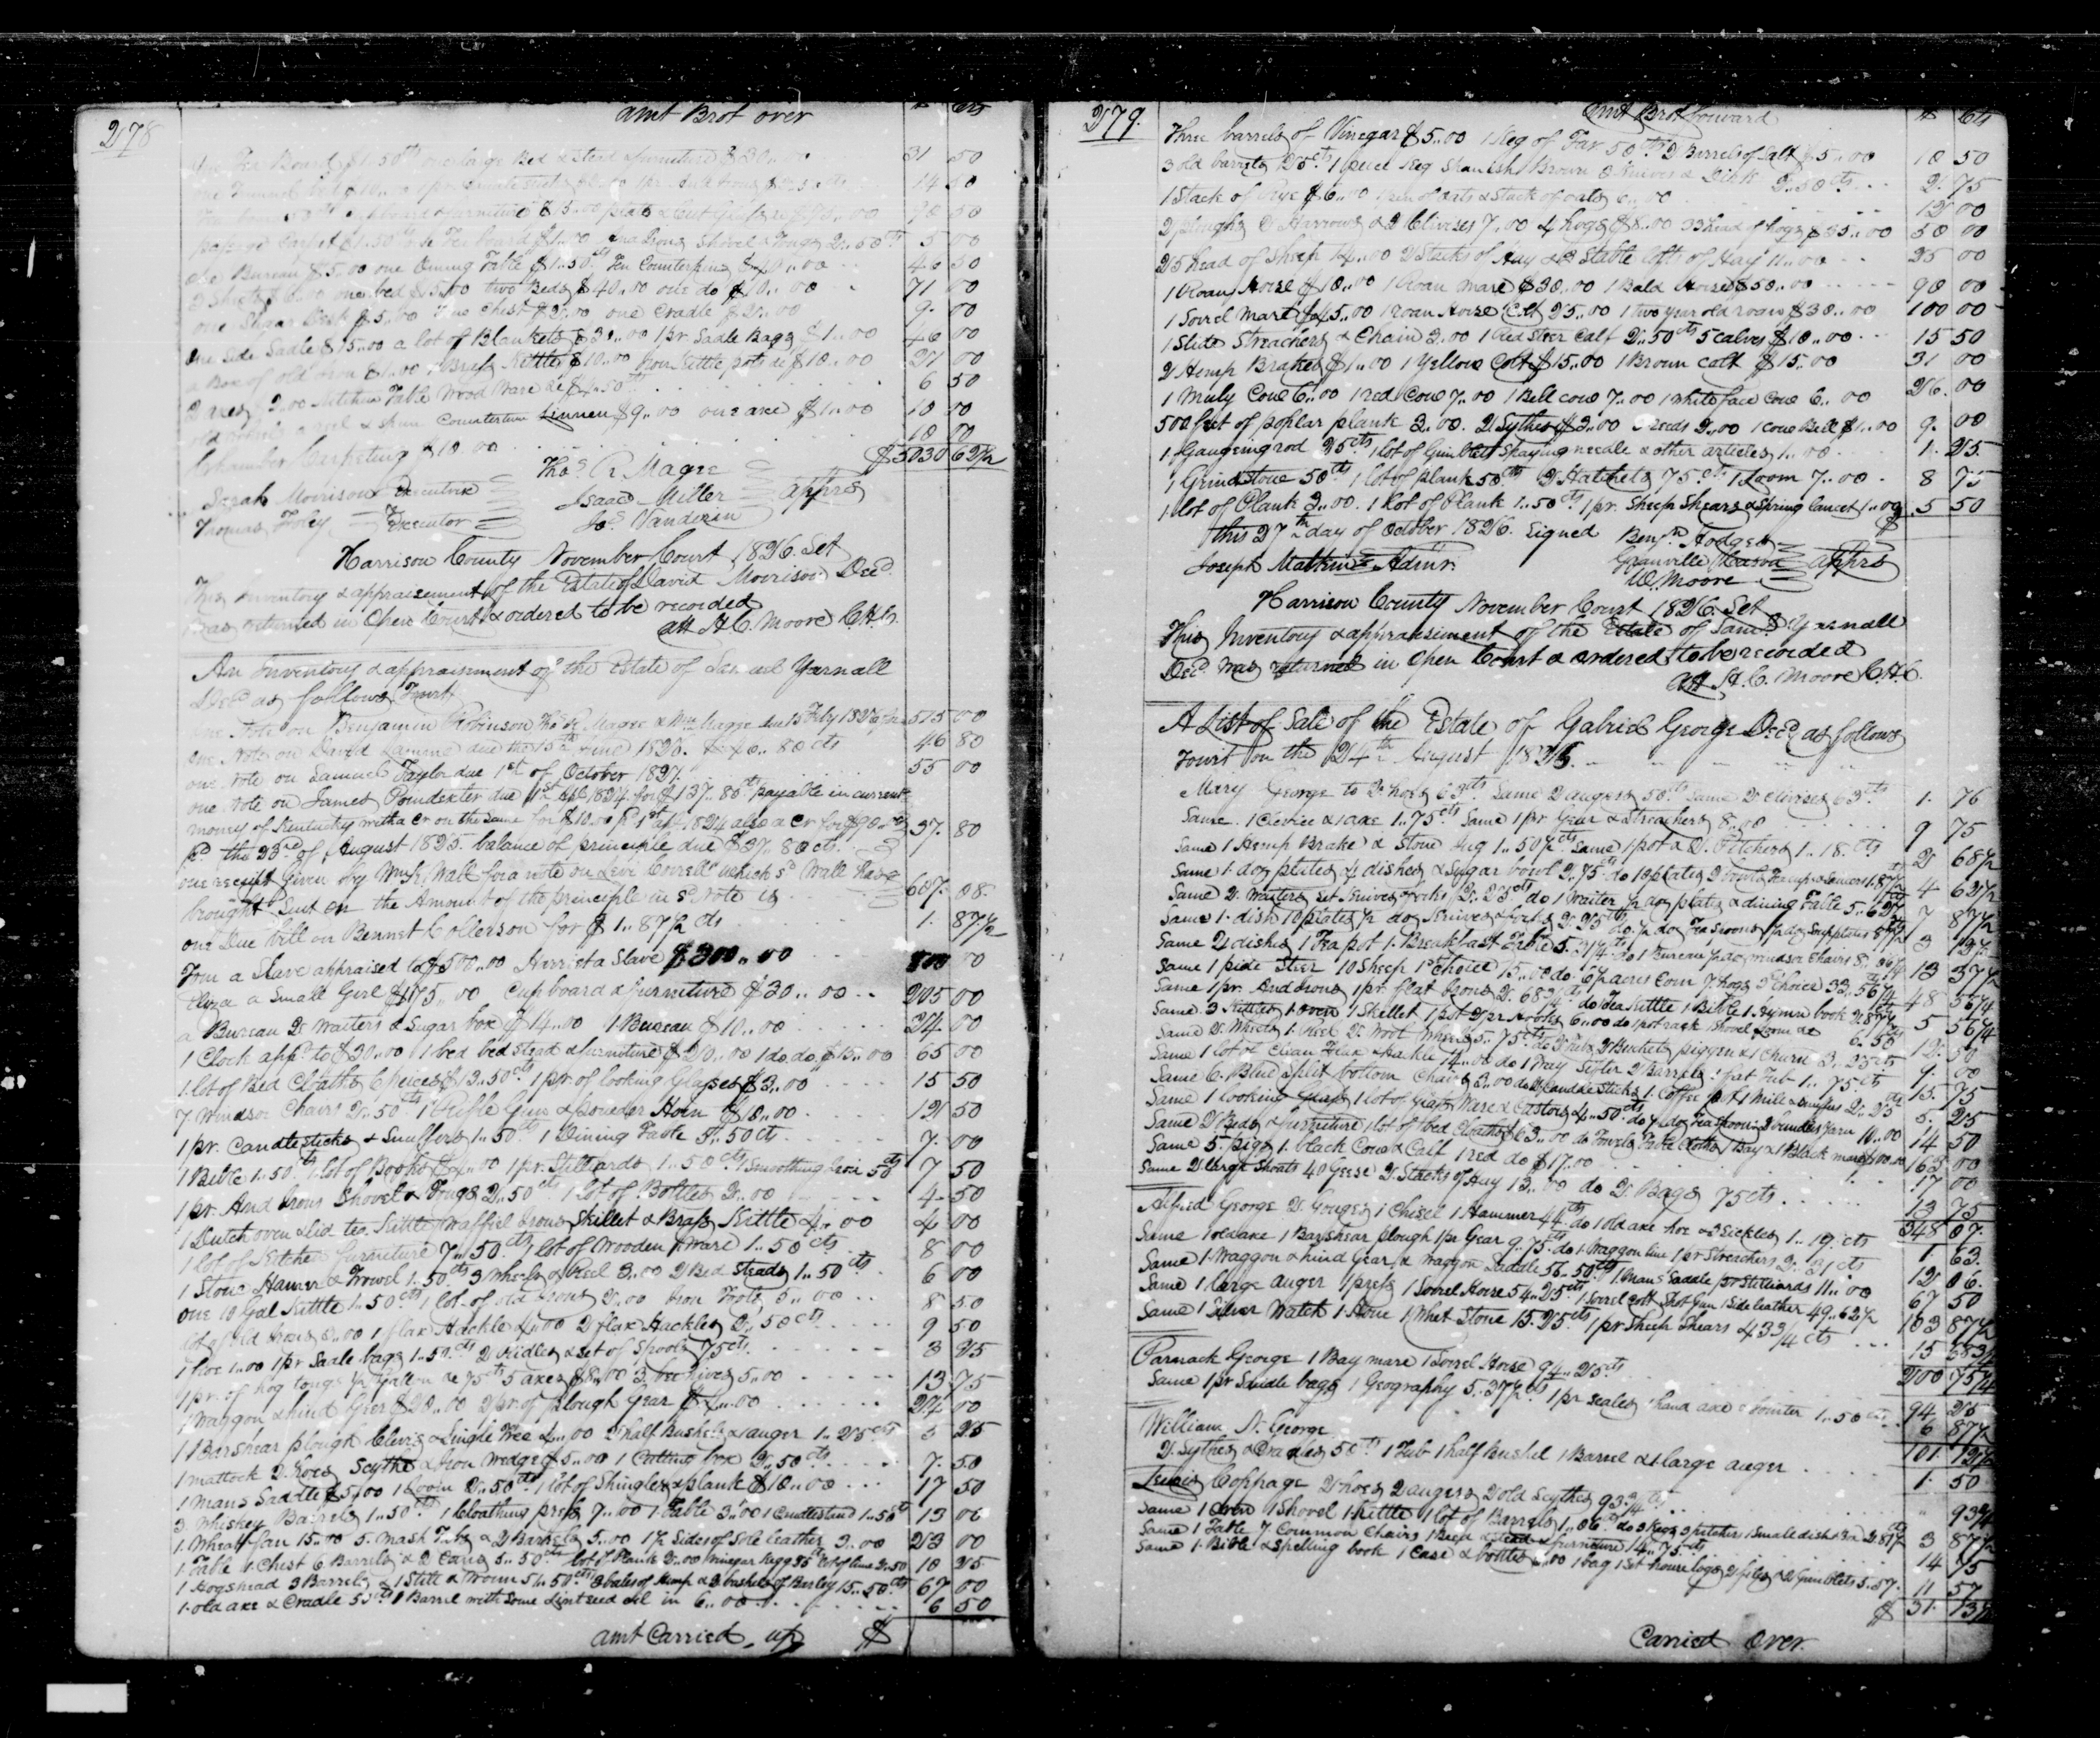 278
amt Brot over
$ cts
One Tea Board $1.50cts one large Bed & Stead & furniture $30..00 31 50
14 50
90 50
passage Carpet $1.50 Tea board $1.00 And Irons Shovel & Tongs 2..50cts 5 00
one Bureau $5.00 one Dining Table $1..50cts Ten Counterpins $40..00 46 50
3 Sheets $6.00 one bed $15.00 two Beds $40..00 one do $10..00 71 00
one Shugar Desk $5..00 One Chest $2..00 one Cradle $2..00 9. 00
One Side Sadle $15..00 a lot of Blankets $30..00 1 pr. Sadle Bags $1..00 46 00
a Box of old iron $1..00 Brass Kettles $10..00 Iron Kettle pots &c $10..00 21 00
2 axes 2..00 Kitchen Table Wood Ware &c $4..50cts 6 50
old wheel a reel & spun Countertim Linnen $9..00 one axe $1..00 10 00
Chamber Carpeting $10.00 10 00
$5030 62½
Sarah Morrison Executrix Thos. R Magee
Thomas Foley Executor Isaac Miller apprs
Jos. Vanderin
Harrison County November Court 1826. Set
This Inventory & appraisement of the Estate of David Morrison Decd.
was returned in Open Court & ordered to be recorded
att H. C. Moore C.H.C.
An Inventory & appraisement of the Estate of Samuel Yarnall
Decd as follows Towit
One Note on Benjamin Robinson Thos R. Magee & Wm Magee due 15 Feby 1826 for 515 00
one Note on David Lamme due the 15th June 1826. for 46..80 cts 46 80
one note on Samuel Taylor due 1st of October 1827. 55 00
one note on James Poindexter due 1st apl 1824. for $137..80cts payable in current
money of Kentucky with a Cr on the same for $10.00 pd 1st apl 1824 also a Cr for $90..00
pd the 23rd of August 1825. balance of principle due $37..80 cts. 37. 80
one receipt given by Wm K. Wall for a note on Levi Correll which sd Wall have
brought Suit on the Amount of the principle in sd note is 607. 08.
one Due bill on Bennet Collerson for $1..87½ cts 1. 87½
Tom a Slave appraised to $500..00 Harriet a Slave $300..00 800 00
Eliza a Small Girl $175..00 Cupboard & furniture $30..00 205 00
a Bureau 2 Waiters & Sugar box $14..00 1 Bureau $10..00 24 00
1 Clock appd to $30..00 1 bed bed stead & furniture $20..00 1 do. do. $15..00 65 00
1. lot of Bed Cloaths 6 peices $12..50cts 1 pr. of looking Glasses $3..00 15 50
7. Windsor Chairs 2..50cts 1 Rifle Gun & powder Horn $10..00 12 50
1 pr. Candlesticks & Snuffers 1..50cts 1 Dining Table 5..50cts 7. 00
1 Bible 1..50cts 1. lot of Books $4..00 1 pr. Stilliards 1..50cts 1 Smoothing Iron 50cts 7 50
1 pr. And Irons Shovel & Tongs 2..50cts 1 lot of Bottles 2..00 4. 50
1 Dutch oven & Lid tea Kettle Waffiel Irons Skillet & Brass Kettle 4..00 4 00
1 lot of Kitchen furniture 7..50cts 1 lot of Wooden Ware 1..50 cts 8 00
1 Stone Hamer & Trowel 1..50cts 3 Wheels & Reel 3..00 2 Bed steads 1..50cts 6 00
One 10 Gal Kettle 1..50cts 1 lot of old Irons 2..00 Iron Tools 5..00 8 50
lot of old Irons 3..00 1 flax Hackle 4..00 2 flax Hackles 2..50 cts 9 50
1 hoe 1..00 1 pr Sadle bags 1..50cts 2 Kidles & set of Spools 75cts 3 25
1 pr. of hog tongs ½ Gallon &c 75cts 5 axes $8..00 3 beehives 5..00 13 75
1 Waggon & hind Gear $20..00 2 pr. of plough Gear $4..00 24 00
1 Barshear plough Clevis & Single Tree 4..00 2 half Bushels & auger 1..25cts 5 25
1 mattock 2 hoes Scythe & Iron Wedge $5..00 1 Cutting box 2..50cts 7. 50
1 mans Saddle $5..00 1 Loom 2..50cts 1 lot of Shingles & plank $10..00 17 50
3. Whiskey Barrels 1..50cts 1 Cloathing press 7..00 1. Table 3..00 1 Candlestand 1..50cts 13 00
1. Wheat fan 15..00 5. Mash Tubs & 2 Barrels 5..00 1½ Sides of Sole leather 3..00 23 00
1. Table 1. Chest 6 Barrels & 2 Cans 5..50cts lot of Plank 2..00 Vinegar Kegg 25cts lot of lime 2..50 10 25
1 Hogshead 3 Barrels & 1 Still & Worm 51..50cts 3 bales of Hemp & 3 bushels of Barley 15..50cts 67 00
1. old axe & Cradle 50cts 1 Barrel with some Lintseed oil in 6..00 6 50
amt Carried up $
279.
amt Brot forward
$ Cts
Three barrels of Vinegar $5..00 1 Keg of Tar 50cts 2 Barrels of Salt $5..00 10 50
3 old barrels 25cts 1 peice Keg Spanish Brown 2..50cts 2. 75
1 Stack of Rye $6..00 1 pen of oats & Stack of oats 6..00 12 00
2 ploughs 2 Harrows & 2 Clivises 7..00 4 hogs $8..00 33 head of hogs $35..00 50 00
25 head of Sheep 14..00 2 Stacks of Hay & 2 Stable lofts of Hay 11..00 25 00
1 Roan Horse $10..00 1 Roan Mare $30..00 1 Bald Horse $50..00 90 00
1 Sorrel Mare $45..00 1 roan Horse Colt 25..00 1 two year old roan $30..00 100 00
1 Slide Streachers & Chain 3.00 1 Red Steer Calf 2..50cts 5 calves $10..00 15 50
2 Hemp Brakes $1..00 1 Yellow Colt $15..00 1 Brown Colt $15..00 31 00
1 Muly Cow 6..00 1 red Cow 7..00 1 Bell cow 7..00 1 white face Cow 6..00 26. 00
500 feet of poplar plank 3..00. 2 Sythes $3..00 Reeds 2..00 1 Cow Bell $1..00 9. 00
1. Gaugeing rod 25cts 1 lot of Gimblets Spaying needle & other articles 1..00 1. 25.
1 Grindstone 50cts 1 lot of plank 50cts 2 Hatchets 75cts 1 Loom 7..00 8 75
1. lot of Plank 3..00. 1 lot of Plank 1..50cts 1 pr. Sheep Shears & Spring lancet 1..00 5 50
this 27th day of October 1826. Signed Benjn. Hodges $
Joseph Mathews Admr. Granville apprs
W Moore
Harrison County November Court 1826. Set
This Inventory & appraisement of the Estate of Saml. Yarnall
Decd. was returned in Open Court & ordered to be recorded
att H. C. Moore C.H.C.
A List of Sale of the Estate of Gabriel George Decd as follows
Towit on the 24th August 1826.
Mary George to 2 hoes 63cts Same 2 augers 50cts Same 2 Clivises 63cts 1. 76
Same. 1 Clevice & 1 axe 1..75cts Same 1 pr Gear & Streachers 8..00 9 75
Same 1 Hemp Brake & Stone Jug 1..50½cts Same 1 pot & 2 Pitchers 1..18.cts 2 68½
Same 1. doz plates 4 dishes & Sugar bowl 2..75cts do 10 plates 2 bowls Teacups & Saucers 1..87½ 4 62½
Same 2 Waiters set Knives & forks 2..25cts do 1 Waiter ½ doz plates & dining Table 5..62½ 7 87½
Same 1. dish 10 plates ½ doz Knives & forks 2..25cts do ½ doz Tea Spoons ½ doz Supplates 87½ 3 12½
Same 2 dishes 1 Tea pot 1. Breakfast Table 5..31¼cts do 1 Bureau ½ doz windsor Chairs 8..06¼ 13 37½
Same 1 pide Steer 10 Sheep 1st Choice 15..00 do 6½ acres Corn 7 hogs 3d Choice 33..56¼ 48 56¼
Same 1 pr. And Irons 1 pr. flat Irons 2..68¾cts do Tea Kettle 1 Bible 1 Hymn book 2..87½ 5 56¼
Same 3 Kettles 1 oven 1 Skillet 1 pot 2 pr Hooks 6..00 do 1 pot rack Shovel Loom &c 6..50 12. 50
Same 2 Wheels 1. Reel 2 Wool Wheels 5..75cts do 3 Tubs 2 Buckets piggin & 1 Churn 3..25cts 9. 00
Same 1 lot of Clean Flax & Hackle 14..00 do 1 Tray Sifter 2 Barrels fat Tub 1..75cts 15. 75
Same 6. Blue Split bottom Chairs 3..00 do 2 Candle Sticks 1. Coffee pot 1 Mill & Snuffers 2..25cts 5. 25
Same 1 looking Glass 1 lot of Glass Ware & Castors 4..50cts do ½ doz Tea Spoons 2 bundles Yarn 10..00 14 50
Same 2 Beds & furniture 1 lot of Bed Cloaths 63..00 do Towels Table Cloths 1 Bay & 1 Black mare 100..00 163 00
Same 5. pigs 1. black Cow & Calf 1 red do $17.00 17 00
Same 2 large Shoats 40 Geese 2 Stacks of Hay 13..00 do 2 Bags 75cts 13 75
348 07.
Alfred George 2 Gouges 1 Chisel 1 Hammer 44cts do 1 old axe hoe & 3 Sickles 1..19 cts 1. 63.
Same 1 old axe 1 Barshear plough 1 pr Gear 9..75cts do 1 Waggon line 1 pr Streachers 2..31 cts 12 06.
Same 1 Waggon & hind Gear & waggon Saddle 56..50cts 1 Mans Saddle 1 pr Stilliards 11..00 67 50
Same 1 large auger 1 press 1 Sorrel Horse 54..25cts 1 Sorrel Colt Shot Gun 1 Side leather 49..62½ 103 87½
Same 1 Silver Watch 1 Hone 1 Whet Stone 15..25cts 1 pr Sheep Shears 43¾cts 15 68¾
200 75¼
Parnack George 1 Bay mare 1 Sorrel Horse 94..25cts 94 25
Same 1 pr Saddle bags 1 Geography 5..37½cts 1 pr scales 1 hand axe & pointer 1..50cts 6 87½
101. 12½
William N. George
2 Sythes & Cradles 50cts 1 Tub 1 half bushel 1 Barrel & 1 large auger 1. 50
Lewis Coppage 2 hoes 2 augers 2 old Scythes 93¾cts 93¾
Same 1 Oven 1 Shovel 1 Kettle 1 lot of Barrels 1..06cts do 3 Kegs 3 pitchers 1 Small dish 2..81½cts 3 87½
Same 1 Table 7 Common Chairs 1 Bed & Stead & furniture 14..75cts 14 75
Same 1. Bible & Spelling book 1 Case & bottles 6..00 1 bag 1 Set house logs 2 files & 2 Gimblets 5..57. 11 57
$ 31. 13¼
Carried Over.